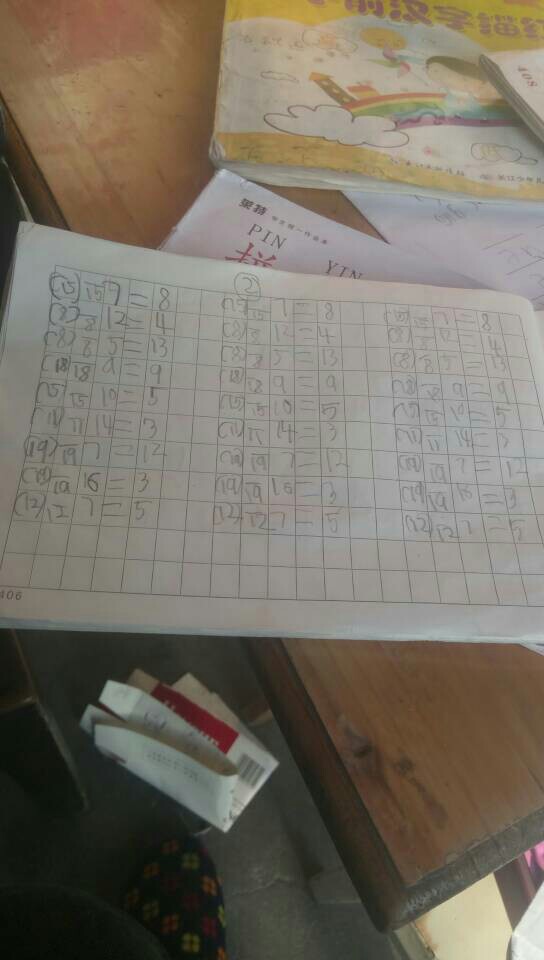 前汉字描
408
长江少年儿
PIN YIN
②
(15) 15 7=8 (15) 15 7=8 (15) 15 7=8
(8) 8 12=4 (8) 8 12=4 (8) 8 12=4
(8) 8 5=13 (8) 8 5=13 (8) 8 5=13
(18) 18 9=9 (18) 18 9=9 (18) 18 9=9
(15) 15 10=5 (15) 15 10=5 (15) 15 10=5
(11) 11 14=3 (11) 11 14=3 (11) 11 14=3
(19) 19 7=12 (19) 19 7=12 (19) 19 7=12
(19) 19 16=3 (19) 19 16=3 (19) 19 16=3
(12) 12 7=5 (12) 12 7=5 (12) 12 7=5
406